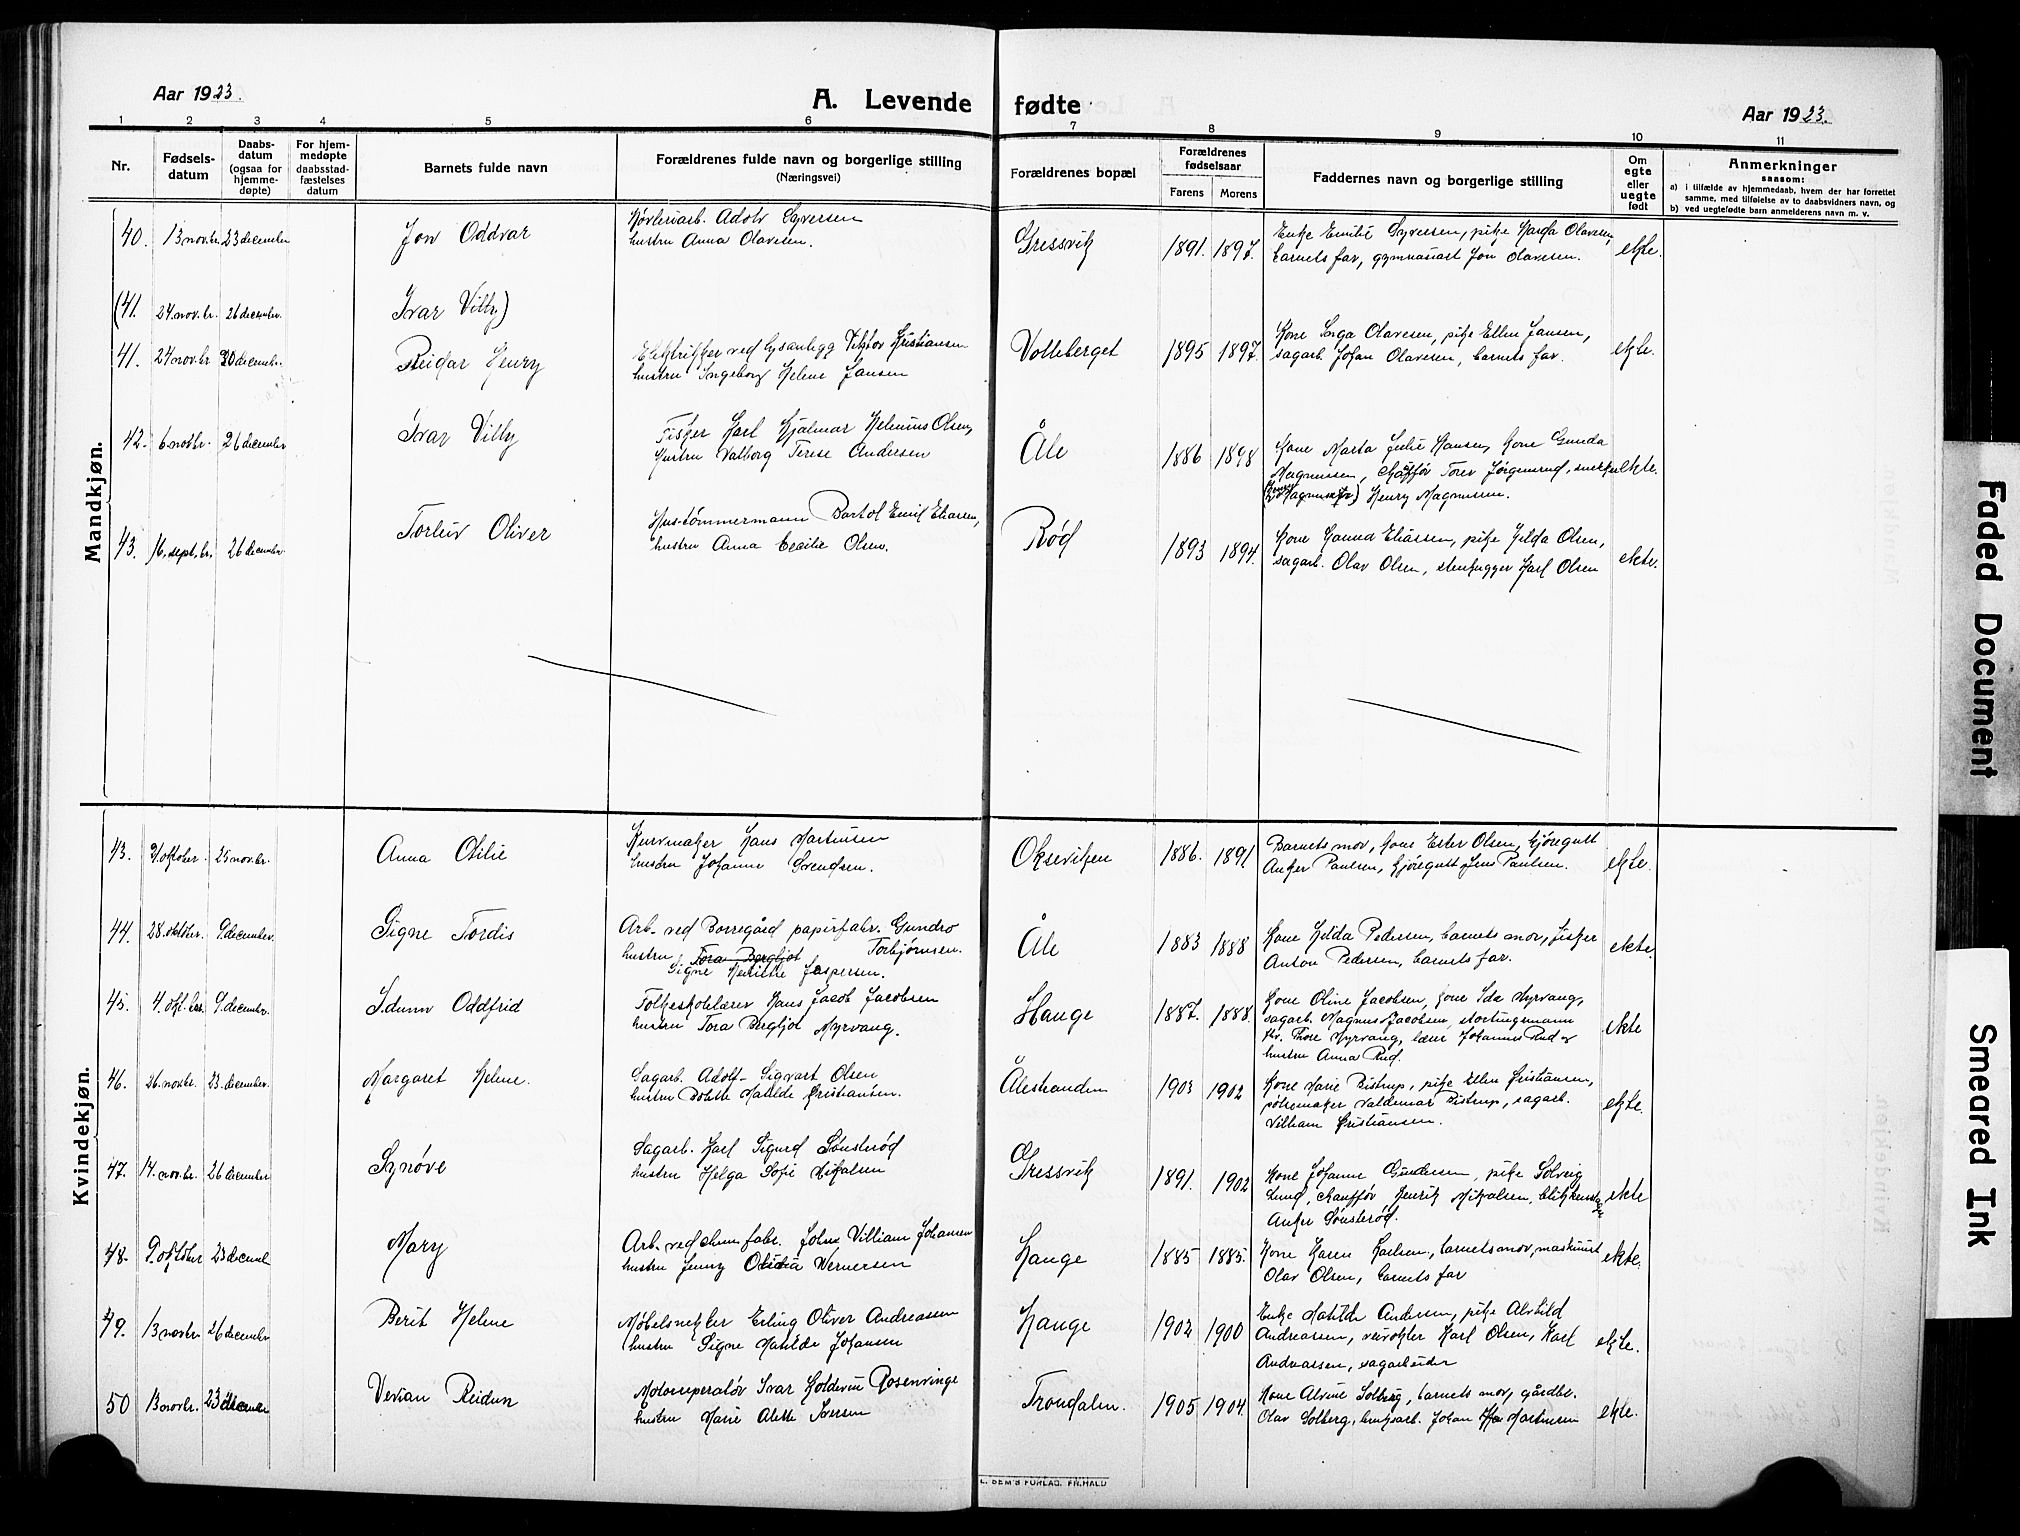 Aar 1923.
A. Levende fødte
Aar 1923.
1 2 3 4 5 6 7 8 9 10 11
Nr.
Fødsels-
datum
Daabs-
datum
(ogsaa for
hjemme-
døpte)
For hjem-
medøpte
daabsstad-
fæstelses
datum
Barnets fulde navn
Forældrenes fulde navn og borgerlige stilling
(Næringsvei)
Forældrenes bopæl
Forældrenes
fødselsaar
Farens Morens
Faddernes navn og borgerlige stilling
Om
egte
eller
uegte
født
Anmerkninger
saasom:
a) i tilfælde av hjemmedaab, hvem der har forrettet
samme, med tilføielse av to daabsvidners navn, og
b) ved uegtefødte barn anmelderens navn m. v.
Mandkjøn.
40. 13 novbr. 23 december Jon Oddvar
Høvleriarb. Adolv Syversen
hustru Anna Olavesen.
Gressvik 1891. 1897.
Enke Emilie Syversen, pike Olavesen,
barnets far, gymnasiast Jon Olavesen.
ekte.
(41. 24. nov.br. 26 december. Ivar Villy)
41. 24 nov.br 30 december. Reidar Henry
Elektriker ved lysanlegg Viktor Kristiansen
hustru Ingeborg Helene Jansen
Volleberget 1895 1897.
Kone Inga Olavesen, pike Ellen Jansen,
sagarb. Johan Olavesen, barnets far.
ekte.
42. 6 novbr. 26 december Ivar Villy
Fisker Karl Hjalmar Helenius Olsen,
Hustru Valborg Terese Andersen
Åle 1886 1898
Kone Marta Julie Hansen, kone Gunda
Magnussen, chaffør Torer Jørgensrud,
Magnussen) Henry Magnussen.
ekte.
43. 16. sept.br. 26 december Torleiv Oliver
Hus-tømmermann Bartol Emil Eliassen,
hustru Anna Cecilie Olsen.
Rød 1893 1894.
Kone Eliassen, pike Hilda Olsen,
sagarb. Olav Olsen, stenhugger Karl Olsen
ekte.
Kvindekjøn.
43. 21. oktober. 25 nov.br. Anna Otilie
Kurvmaker Hans Martinsen
hustru Johanne Svendsen.
Okseviken 1886. 1891
Barnets mor, kone Ester Olsen, kjøregutt
Anker Paulsen, kjøregutt Jens Paulsen.
ekte.
44. 28. oktober. 9. december. Signe Tordis
Arb. ved Borregård papirfabr. Gundro
hustru Tora Bergljot Torbjørnsen.
Signe Jespersen.
Åle 1883 1888
Kone Hilda Pedersen, barnets mor, fisker
Anton Pedersen, barnets far.
ekte.
45. 4. okt.ber. 9. december. Idunn Oddfrid
Folkeskolelærer Hans Jacob Jacobsen
hustru Tora Bergljot Myrvang.
Hauge 1887. 1888.
Kone Oline Jacobsen, kone Ida Myrvang,
sagarb. Magnus Jacobsen, stortingsmann
Thore Myrvang, lærer Johannes Rud og
hustru Anna Rud.
ekte
46. 26. novbr. 23. december. Margaret Helene.
Sagarb. Adolf Sigvart Olsen
hustru Bolette Matilde Kristiansen.
Ålestranden 1903 1902
Kone Marie Bistrup, pike Ellen Kristiansen,
pølsemaker Valdemar Bistrup, sagarb.
Villiam Kristiansen.
ekte.
47. 14. nov.br. 26 december Synøve
Sagarb. Karl Sigurd Sønsterød
hustru Helga Sofie Mikalsen
Gressvik 1891. 1902
Kone Johanne Gundersen, pike Solveig
Lund, chauffør Henrik Mikalsen,
Anker Sønsterød.
ekte
48. 9. oktober 23 decembr Mary
Arb. ved chem. fabr. Johns Villiam Johansen
hustru Jenny Olivia Wernersen
Hauge 1885 1885.
Kone Karen Karlsen, barnets mor, maskinist
Olav Olsen, barnets far
ekte.
49. 13 novbr. 26 december Berit Helene
Møbelsnekker Erling Oliver Andreassen
hustru Signe Matilde Johansen
Hauge 1902 1900
Enke Matilde Andersen, pike Alvhild
Andreassen, Karl Olsen, Karl
Andreassen, sagarbeider
ekte.
50 13. novbr. 23 december Verian Reidun
Motoroperatør Ivar Rosenvinge
hustru Marie Alette Iversen
Trondalen. 1905 1904.
Kone Alvine Solberg, barnets mor, gårdbr.
Olav Solberg, Johan Martinsen
ekte.
L. BEM'S FORLAG. FR.HALD
Faded Document
Smeared Ink